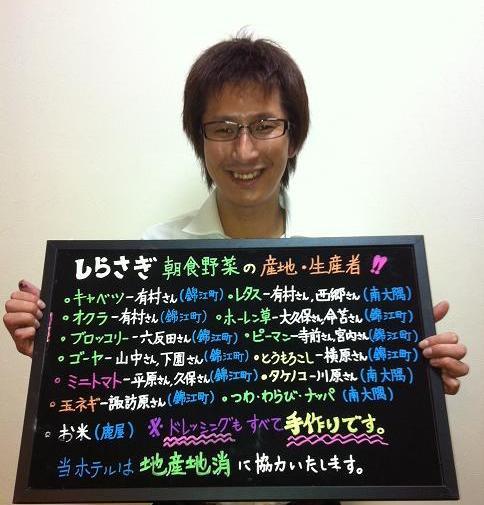 しらさぎ 朝食野菜の産地・生産者!!
・キャベツー有村さん(錦江町) ・レタスー有村さん,西郷さん(南大隅)
・オクラー有村さん(錦江町) ・ホーレン草ー大久保さん,今吉さん(錦江町)
・ブロッコリー六反田さん(錦江町) ・ピーマンー寺前さん,宮内さん(錦江町)
・ゴーヤー山中さん,下園さん(錦江町) ・とうもろこしー横原さん(錦江町)
・ミニトマトー平原さん,久保さん(錦江町) ・タケノコー川原さん(南大隅)
・玉ネギー諏訪原さん(錦江町) ・つわ・わらび・ナッパ(南大隅)
・お米(鹿屋) ※ドレッシングもすべて手作りです。
当ホテルは地産地消に協力いたします。